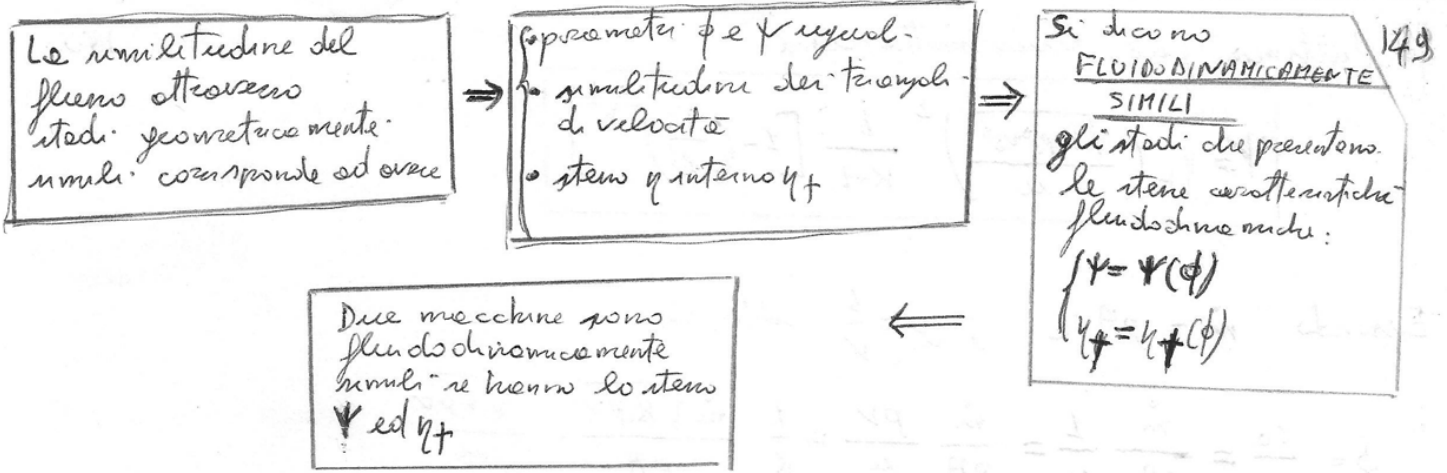 La similitudine del
flusso attraverso
stadi geometricamente
simili corrisponde ad avere
⇒
• parametri φ e ψ uguali
• similitudine dei triangoli
di velocità
• stesso η interno η_t
⇒
Si dicono
FLUIDODINAMICAMENTE
SIMILI
gli stadi che presentano
le stesse caratteristiche
fluidodinamiche:
ψ = ψ(φ)
η_t = η_t(φ)
149
⇐
Due macchine sono
fluidodinamicamente
simili se hanno lo stesso
ψ ed η_t